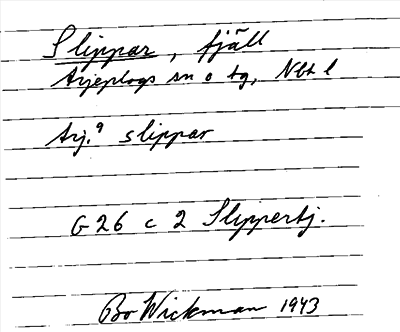 Slippar, fjäll
Arjeplogs sn o tg, Nbt l
Arj.9 slippar
G 26 c 2 Slippertj.
Bo Wickman 1943